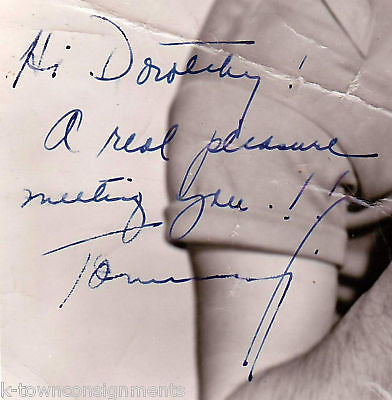 Hi Dorothy!
A real pleasure
meeting you!!
Tommy
k-townconsignments